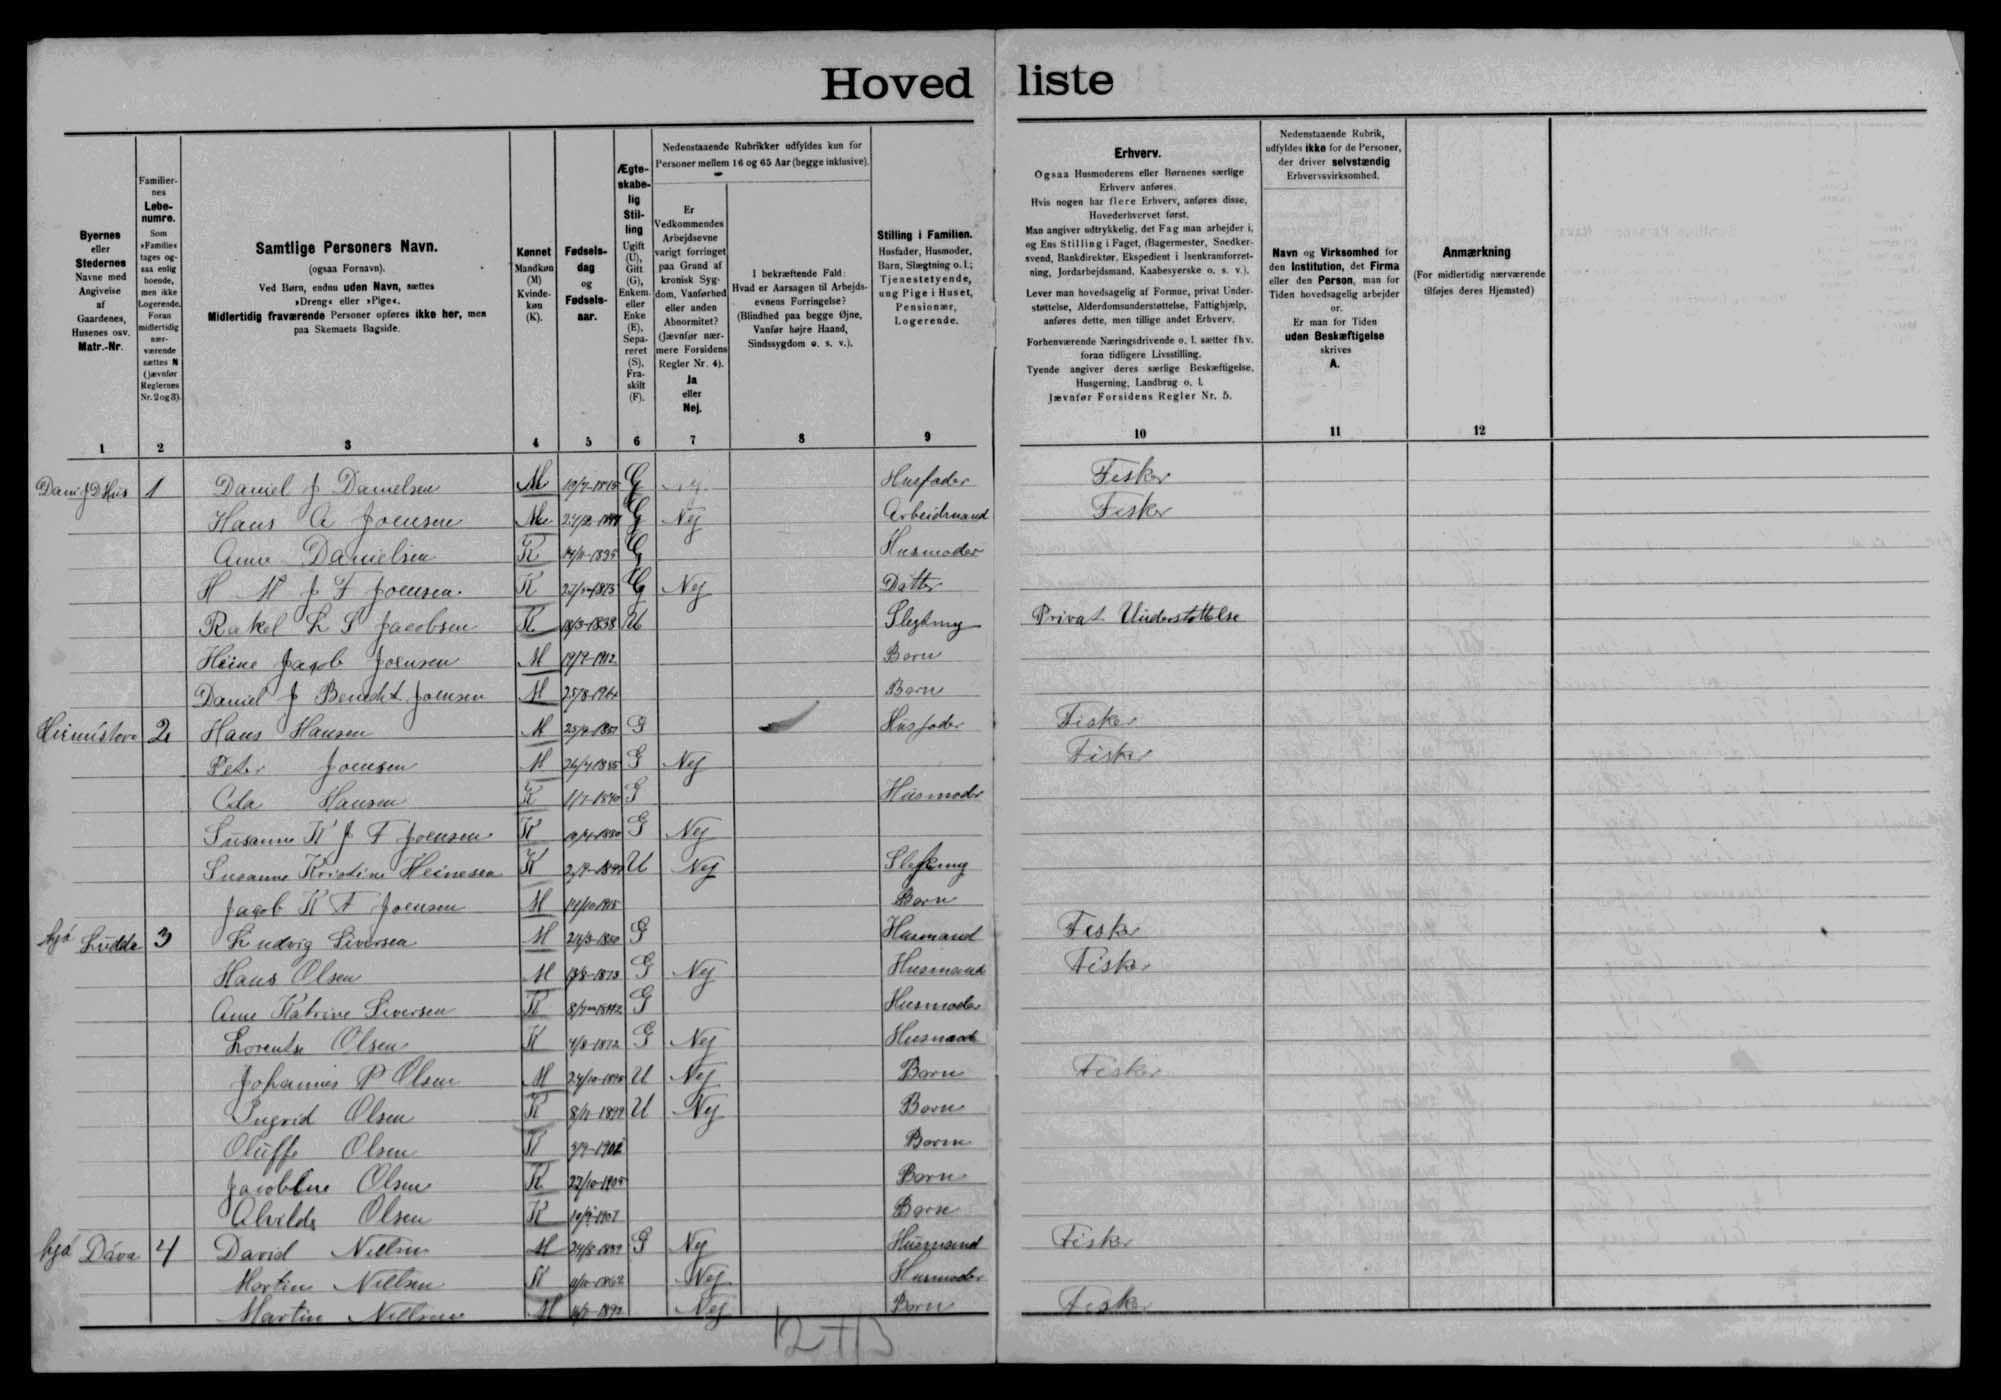 Hovedliste
Byernes eller Stedernes Navne med Angivelse af Gaardenes, Husenes osv. Matr.-Nr.
Familiernes Løbenumre. Som »Familie« tages ogsaa enlig boende, men ikke Logerende. Foran midlertidig nærværende sættes N (jævnfør Reglernes Nr. 2 og 3).
Samtlige Personers Navn. (ogsaa Fornavn). Ved Børn, endnu uden Navn, sættes »Dreng« eller »Pige«. Midlertidig fraværende Personer opføres ikke her, men paa Skemaets Bagside.
Kønnet Mandkøn (M) Kvindekøn (K).
Fødselsdag og Fødselsaar.
Ægteskabelig Stilling Ugift (U), Gift (G), Enkem. eller Enke (E), Separeret (S), Fraskilt (F).
Nedenstaaende Rubrikker udfyldes kun for Personer mellem 16 og 65 Aar (begge inklusive).
Er Vedkommendes Arbejdsevne varigt forringet paa Grund af kronisk Sygdom, Vanførhed eller anden Abnormitet? (Jævnfør nærmere Forsidens Regler Nr. 4). Ja eller Nej.
I bekræftende Fald: Hvad er Aarsagen til Arbejdsevnens Forringelse? (Blindhed paa begge Øjne, Vanfør højre Haand, Sindssygdom o. s. v.).
Stilling i Familien. Husfader, Husmoder, Barn, Slægtning o. l.; Tjenestetyende, ung Pige i Huset, Pensionær, Logerende.
Erhverv. Ogsaa Husmoderens eller Børnenes særlige Erhverv anføres. Hvis nogen har flere Erhverv, anføres disse, Hovederhvervet først. Man angiver udtrykkelig, det Fag man arbejder i, og Ens Stilling i Faget, (Bagermester, Snedkersvend, Bankdirektør, Ekspedient i Isenkramforretning, Jordarbejdsmand, Kaabesyerske o. s. v.). Lever man hovedsagelig af Formue, privat Understøttelse, Alderdomsunderstøttelse, Fattighjælp, anføres dette, men tillige andet Erhverv. Forhenværende Næringsdrivende o. l. sætter fhv. foran tidligere Livsstilling. Tyende angiver deres særlige Beskæftigelse, Husgerning, Landbrug o. l. Jævnfør Forsidens Regler Nr. 5.
Nedenstaaende Rubrik, udfyldes ikke for de Personer, der driver selvstændig Erhvervsvirksomhed.
Navn og Virksomhed for den Institution, det Firma eller den Person, man for Tiden hovedsagelig arbejder or. Er man for Tiden uden Beskæftigelse skrives A.
Anmærkning (For midlertidig nærværende tilføjes deres Hjemsted)
1 2 3 4 5 6 7 8 9 10 11 12
Dani J D Hus 1 Daniel J Danielsen M G Husfader Fisker
Hans A Joensen M G Nej Arbeidmand Fisker
Anne Danielsen K G Husmoder
H M J F Joensen K G Nej Datter
Rakel L S Jacobsen K 18/3-1838 U Slegtning Privat Understøttelse
Heine Jagob Joensen M 19/7-1912 Barn
Daniel J Benedikt Joensen M Barn
Heimistova 2 Hans Hansen M G Husfader Fisker
Peter Joensen M 26/4-1885 G Nej Fisker
Cela Hansen K 1/7-1840 G Husmoder
Susanne K J F Joensen K G Nej
Susanne Kristine Heinesen K U Nej Slegtning
Jagob K F Joensen M Barn
hjá Ludda 3 Ludvig Siversen M G Husmand Fisker
Hans Olsen M G Nej Husmand Fisker
Ane Katrine Siversen K G Husmoder
Lorentse Olsen K 4/8-1872 G Nej
Johannes P Olsen M U Nej Barn Fisker
Ingrid Olsen K 8/11-1899 U Nej Barn
Oluffe Olsen K Barn
Jacobline Olsen K 22/10-1905 Barn
Alvilda Olsen K Barn
hjá Dáva 4 David Nielsen M G Nej Husmand Fisker
Martine Nielsen K Nej Husmoder
Martin Nielsen M Nej Barn Fisker
12+13